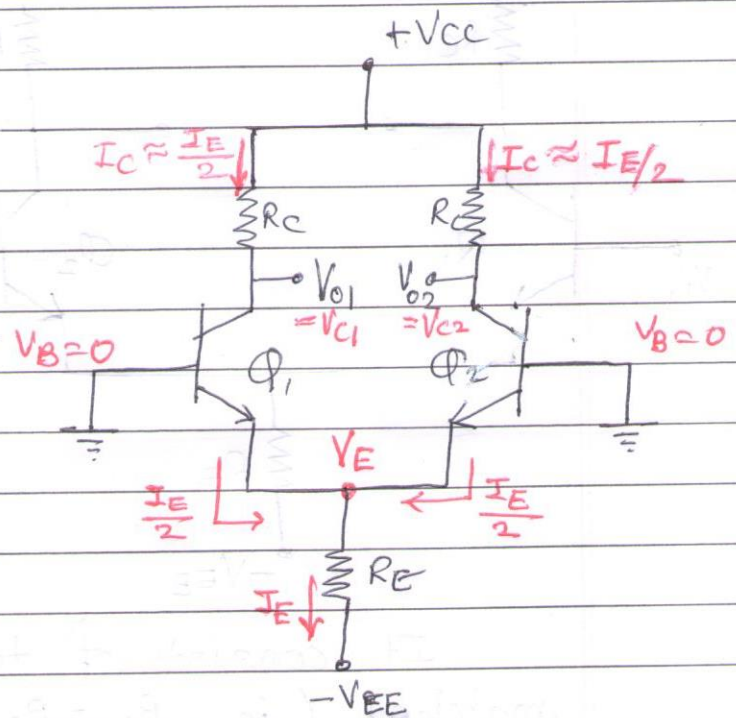 +VCC
IC ≈ IE/2
IC ≈ IE/2
RC
RC
Vo1
Vo2
=VC1
=VC2
VB=0
VB=0
Q1
Q2
VE
IE/2
IE/2
RE
IE
-VEE